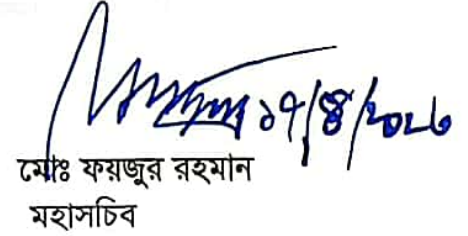 ১৭/৪/২০২৬
মোঃ ফয়জুর রহমান
মহাসচিব